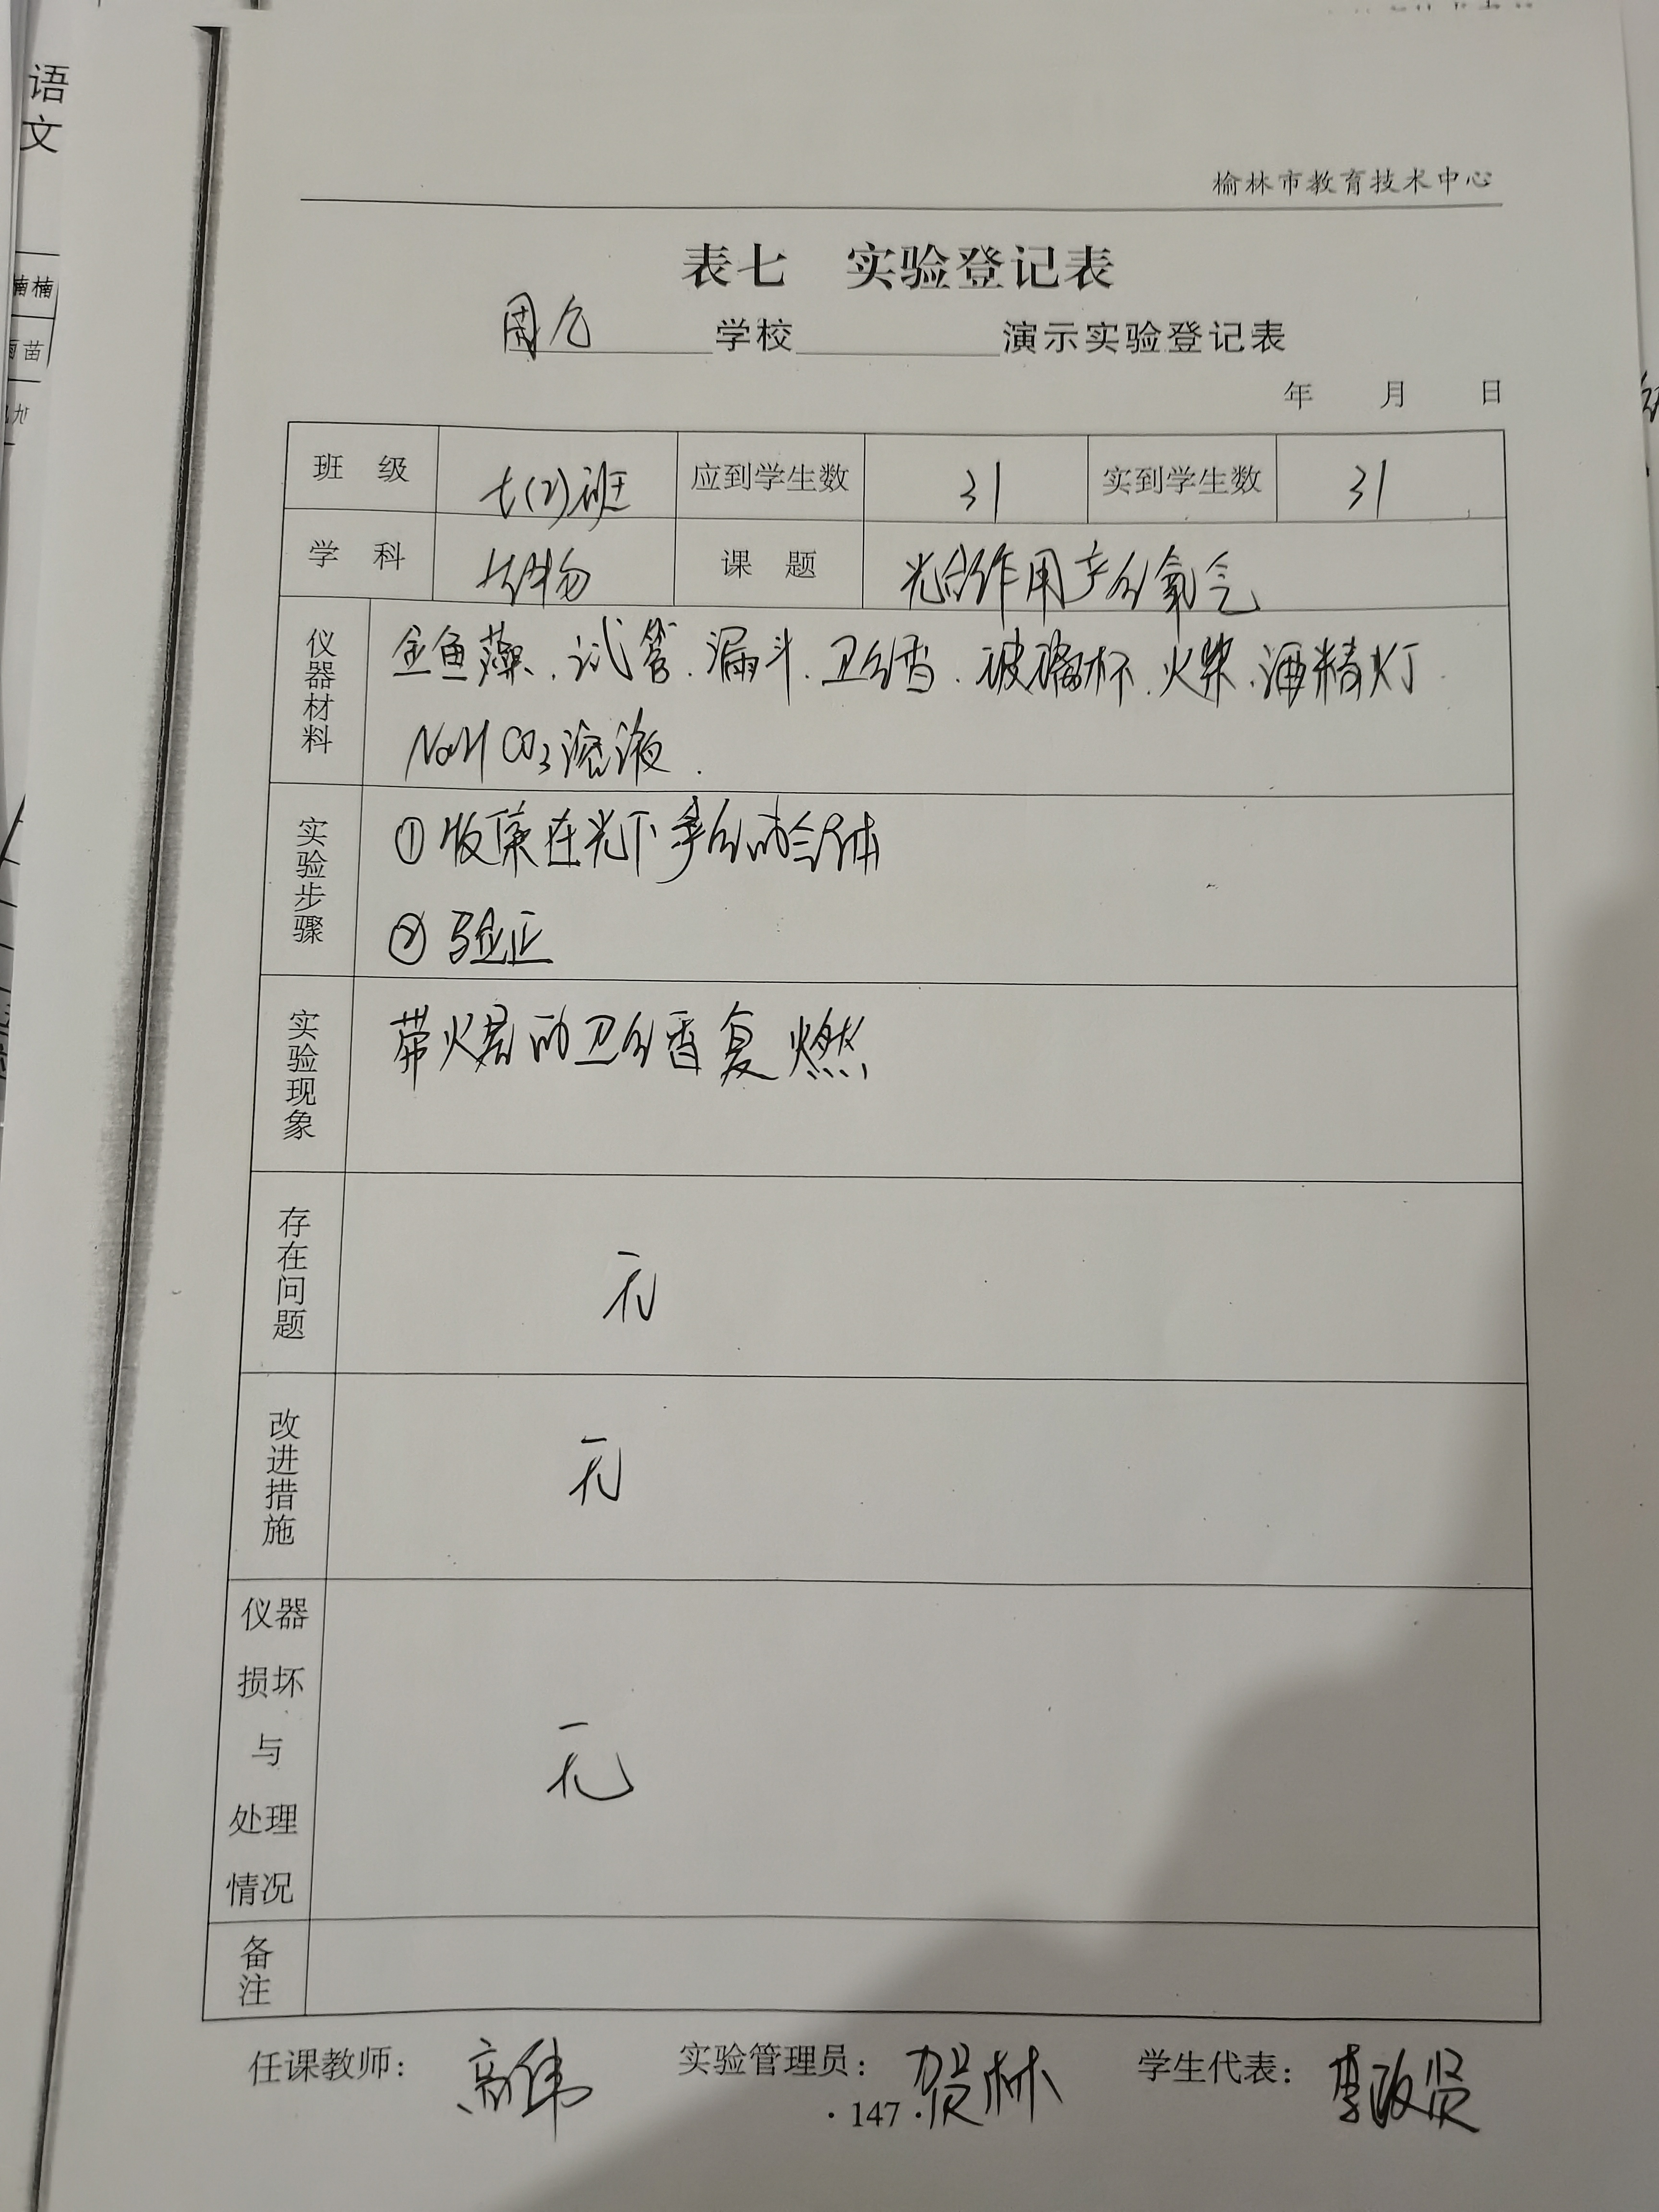 语
文
楠楠
苗
榆林市教育技术中心
表七 实验登记表
学校 演示实验登记表
年 月 日
班 级 七(2)班 应到学生数 31 实到学生数 31
学 科 生物 课 题 光合作用产生氧气
仪器材料 金鱼藻、试管、漏斗、卫生香、玻璃杯、火柴、酒精灯
NaHCO3溶液.
实验步骤 ①收集在光下产生的气体
②验证
实验现象 带火星的卫生香复燃
存在问题 无
改进措施 无
仪器
损坏
与 无
处理
情况
备注
任课教师: 高伟 实验管理员: 贺林 学生代表: 李政贤
·147·